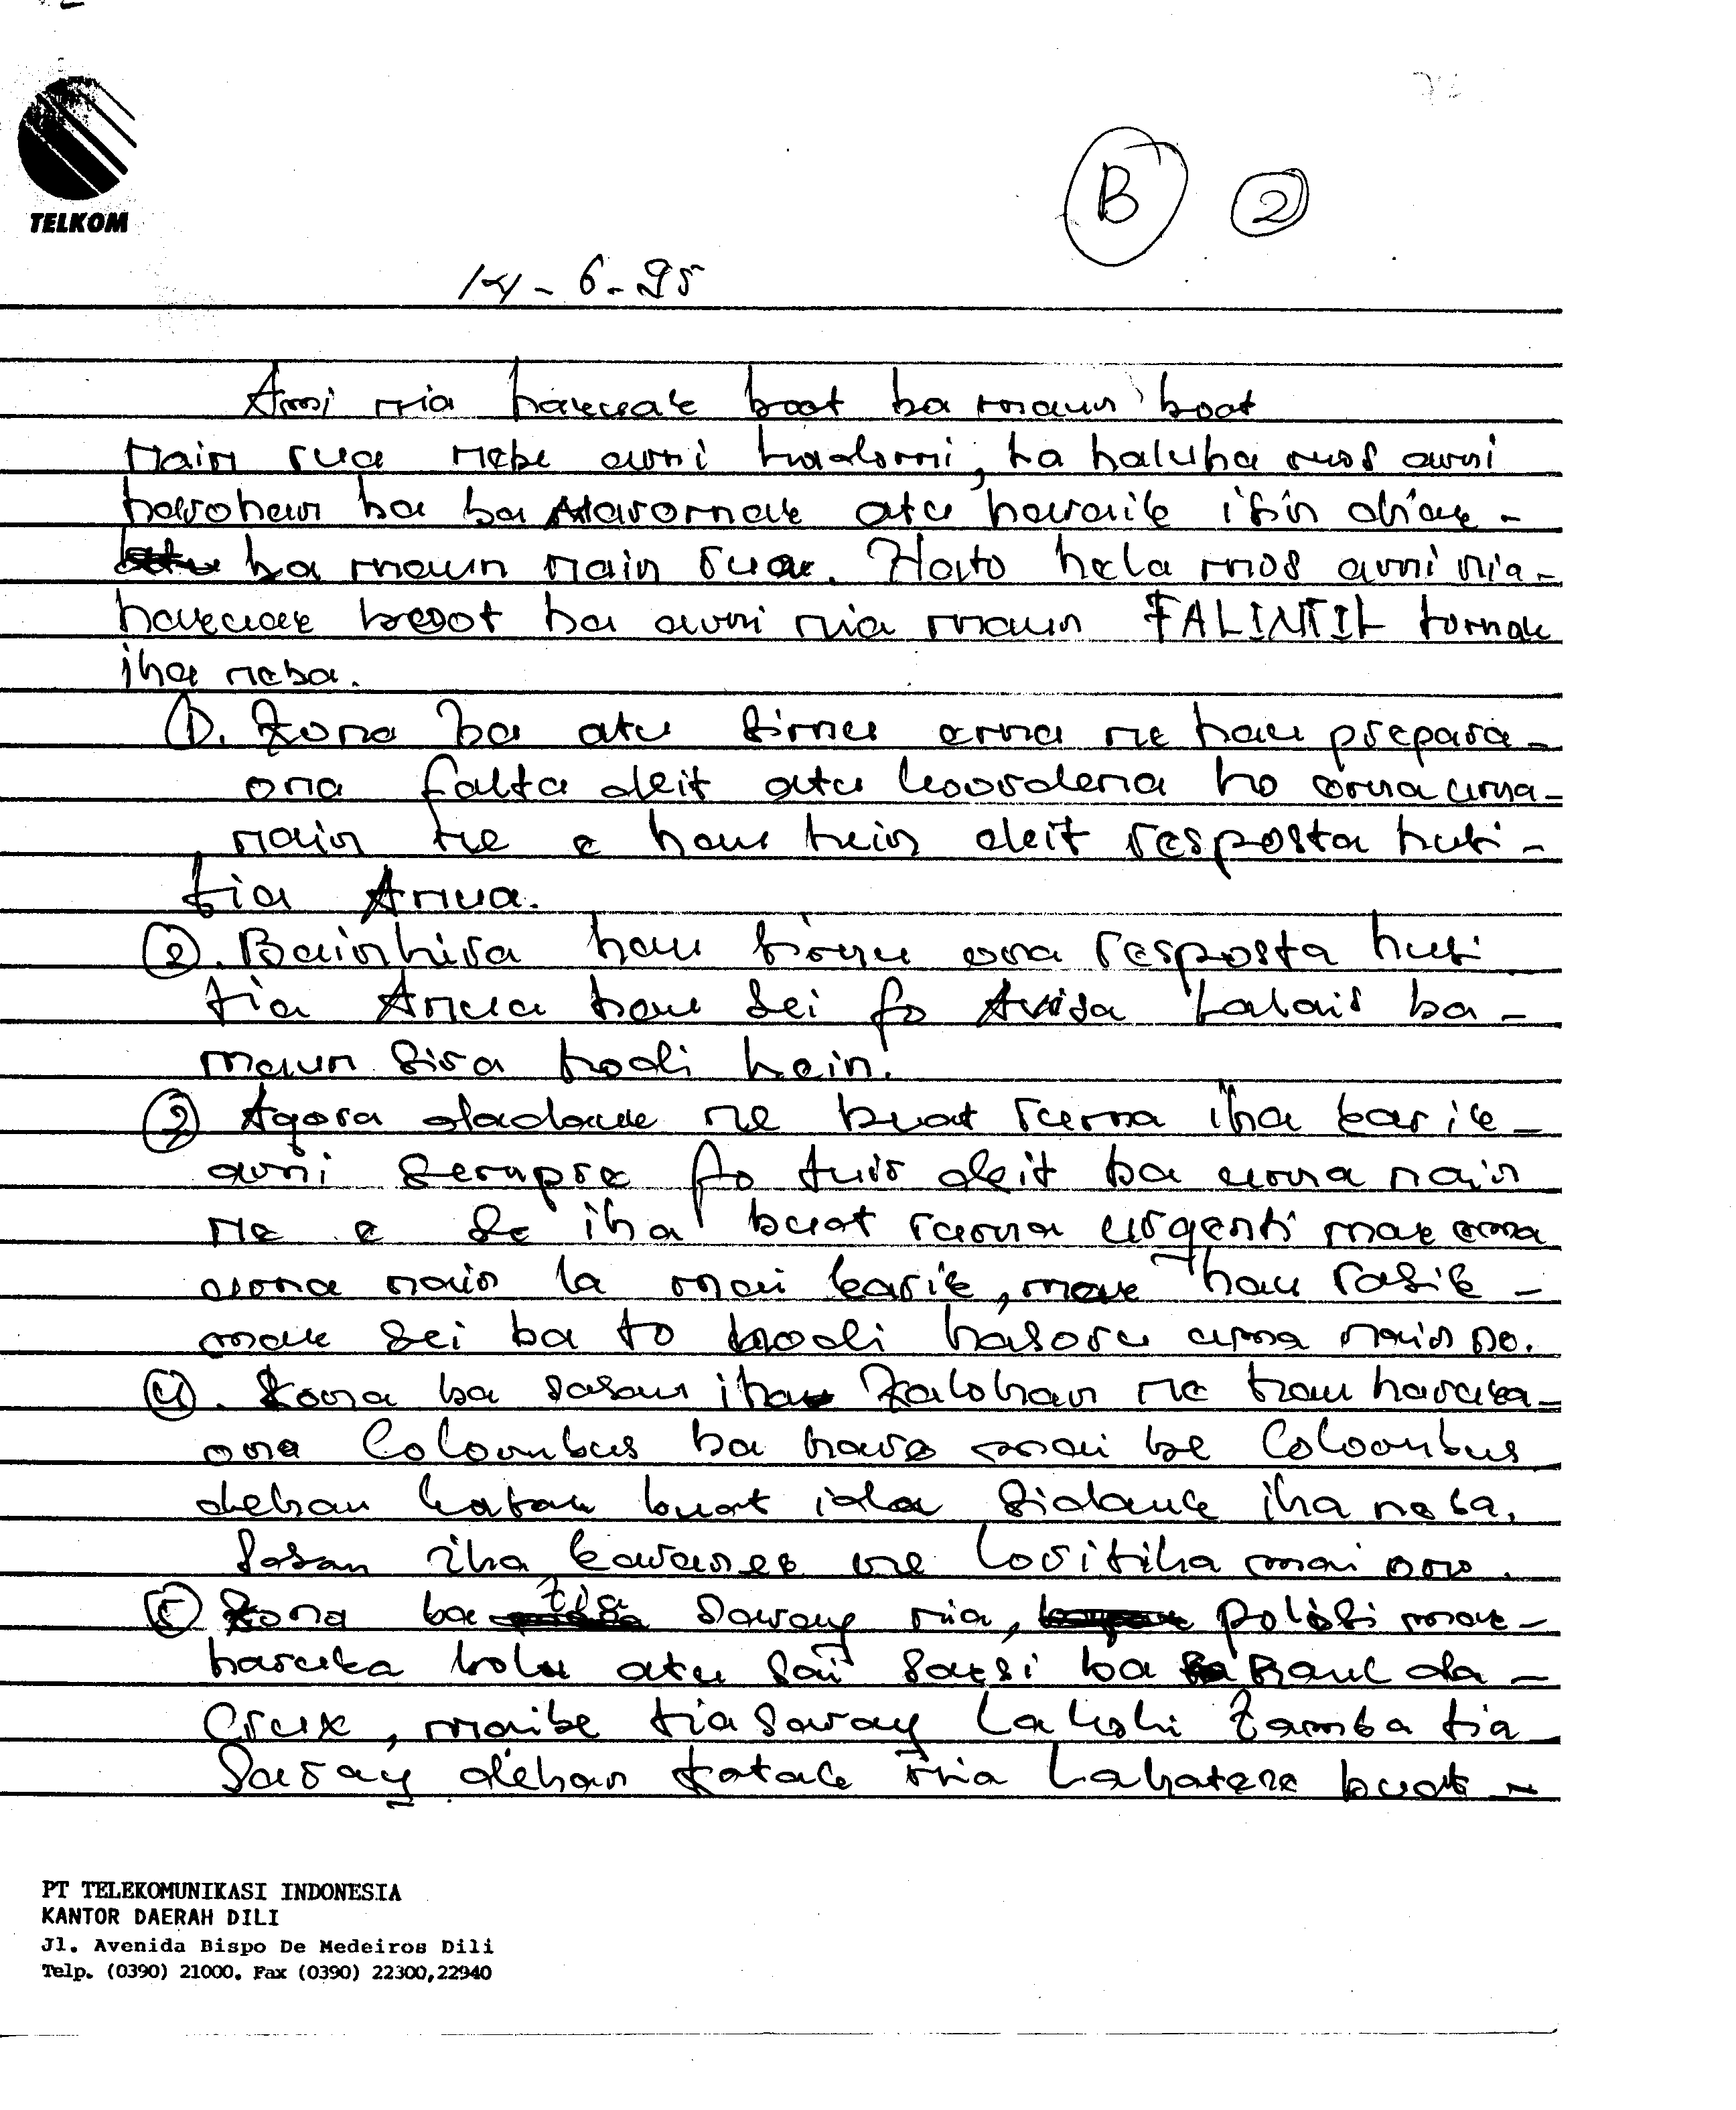 TELKOM
B 2
14-6-95
Ami nia hakuak boot ba maun boot
nain rua nebe ami hadomi, la haluha mos ami
harohan ba ba Maromak atu haraik isin diak -
ba maun nain rua. Hato hela mos ami nia -
hakuak boot ba ami nia maun FALINTIL tomak
iha neba.
1). Kona ba atu simu ema ne hau prepara -
ona falta deit atu koordena ho ema uma -
nain ne e hau hein deit resposta husi -
tia Anua.
2). Bainhira hau simu ona resposta husi
tia Anua hau sei fo Avisa lalais ba -
maun sira hodi hein.
3) Agora dadauk ne buat ruma iha karik -
ami sempre fo tuir deit ba uma nain
ne e se iha buat ruma urgenti mak ema
uma nain la mai karik, mak hau rasik -
mak sei ba to hodi hasoru uma nain no.
4). Kona ba sasan iha Kalohan ne hau haruka -
ona Coloumbus ba hare mai be Coloumbus
dehan katak buat ida sidauk iha neba.
Sasan iha ne lori tiha mai ona.
5) Kona ba tia Saray nia, polisi mak -
haruka bolu atu sai saksi ba Raul da -
Crux, maibe tia Saray lakohi tamba tia
Saray dehan katak nia lahatene buat -
PT TELEKOMUNIKASI INDONESIA
KANTOR DAERAH DILI
Jl. Avenida Bispo De Medeiros Dili
Telp. (0390) 21000. Fax (0390) 22300,22940